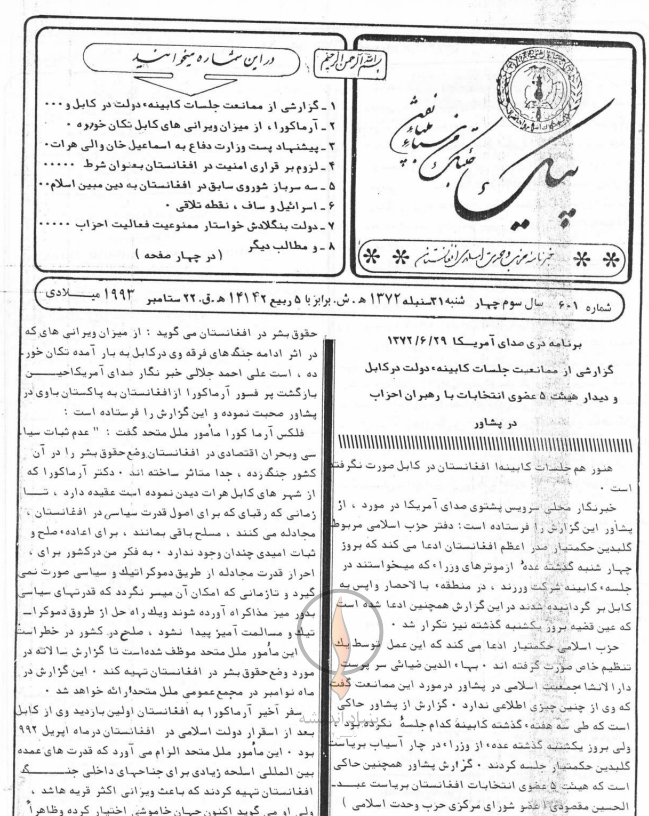 بسم الله الرحمن الرحیم
در این شماره میخوانید
۱ ـ گزارشی از ممانعت جلسات کابینه، دولت در کابل و ۰۰۰
۲ ـ آرماکورا، از میزان ویرانی های کابل تکان خورده ۰
۳ ـ پیشنهاد پست وزارت دفاع به اسماعیل خان والی هرات۰
۴ ـ لزوم بر قراری امنیت در افغانستان بعنوان شرط ۰۰۰۰۰
۵ ـ سه سرباز شوروی سابق در افغانستان به دین مبین اسلام۰۰
۶ ـ اسرائیل و ساف ، نقطه تلاقی ۰
۷ ـ دولت بنگلادش خواستار ممنوعیت فعالیت احزاب ۰۰۰۰۰
۸ ـ و مطالب دیگر
( در چهار صفحه )
پیک
شماره ۶۰۱ سال سوم چهار شنبه ۳۱ سنبله ۱۳۷۲ ه.ش. برابر با ۵ ربیع ۲ ۱۴۱۴ ه.ق. ۲۲ ستامبر ۱۹۹۳ میلادی
برنامه دری صدای آمریکا ۱۳۷۲/۶/۲۹
گزارشی از ممانعت جلسات کابینه، دولت درکابل
و دیدار هیئت ۵ عضوی انتخابات با رهبران احزاب
در پشاور
هنوز هم جلسات کابینه افغانستان در کابل صورت نگرفته
است ۰
خبرنگار محلی سرویس پشتوی صدای آمریکا در مورد ، از
پشاور این گزارش را فرستاده است: دفتر حزب اسلامی مربوط
گلبدین حکمتیار صدر اعظم افغانستان ادعا می کند که بروز
چهار شنبه گذشته عده از موترهای وزراء که میخواستند در
جلسه، کابینه شرکت ورزند ، در منطقه، بالاحصار واپس به
کابل بر گردانیده شدند در این گزارش همچنین ادعا شده است
که عین قضیه بروز یکشنبه گذشته نیز تکرار شد ۰
حزب اسلامی حکمتیار ادعا می کند که این عمل توسط یک
تنظیم خاص صورت گرفته اند ۰ بهاء الدین ضیائی سر پرست
دار الانشا جمعیت اسلامی در پشاور درمورد این ممانعت گفت
که وی از چنین چیزی اطلاعی ندارد ۰ گزارش از پشاور حاکی
است که طی سه هفته، گذشته کابینه کدام جلسهٔ نکرده بود
ولی بروز یکشنبه گذشته عده، از وزراء در چار آسیاب بریاست
گلبدین حکمتیار جلسه کردند ۰ گزارش پشاور همچنین حاکی
است که هیئت ۵ عضوی انتخابات افغانستان بریاست عبد
الحسین مقصودی ( عضو شورای مرکزی حزب وحدت اسلامی )
حقوق بشر در افغانستان می گوید : از میزان ویرانی های که
در اثر ادامه جنگ های فرقه وی درکابل به بار آمده تکان خور
ده ، است علی احمد جلالی خبر نگار صدای آمریکا حین
بازگشت پر فسور آرماکورا از افغانستان به پاکستان باوی در
پشاور صحبت نموده و این گزارش را فرستاده است :
فلکس آرما کورا مأمور ملل متحد گفت : " عدم ثبات سیا
سی وبحران اقتصادی در افغانستان وضع حقوق بشر را در آن
کشور جنگ زده ، جدا متاثر ساخته اند ۰ دکتر آرماکورا که
از شهر های کابل هرات دیدن نموده است عقیده دارد ، تا
زمانی که رقبای که برای اصول قدرت سیاسی در افغانستان ،
مجادله می کنند ، مسلح باقی بمانند ، برای اعاده، صلح و
ثبات امیدی چندان وجود ندارد ۰ به فکر من درکشور برای ،
احراز قدرت مجادله از طریق دموکراتیک و سیاسی صورت نمی
گیرد و تازمانی که امکان آن میسر نگردد که قدرتهای سیاسی
بدور میز مذاکراه آورده شوند ویک راه حل از طروق دموکرا
تیک و مسالمت آمیز پیدا نشود ، صلح در کشور در خطر است
این مأمور ملل متحد موظف شده است تا گزارش سا لانه در
مورد وضع حقوق بشر در افغانستان تهیه کند ۰ این گزارش در
ماه نوامبر در مجمع عمومی ملل متحد ارائه خواهد شد ۰
سفر اخیر آرماکورا به افغانستان اولین بازدید وی از کابل
بعد از اسقرار دولت اسلامی در افغانستان درماه اپریل ۹۹۲
بود ۰ این مأمور ملل متحد الزام می آورد که قدرت های عمده
بین المللی اسلحه زیادی برای جناحهای داخلی جنگ
افغانستان تهیه کردند که باعث ویرانی اکثر قریه هاشد ،
ولی او می گوید اکنون جهان خاموشی اختیار کرده وظاهراً